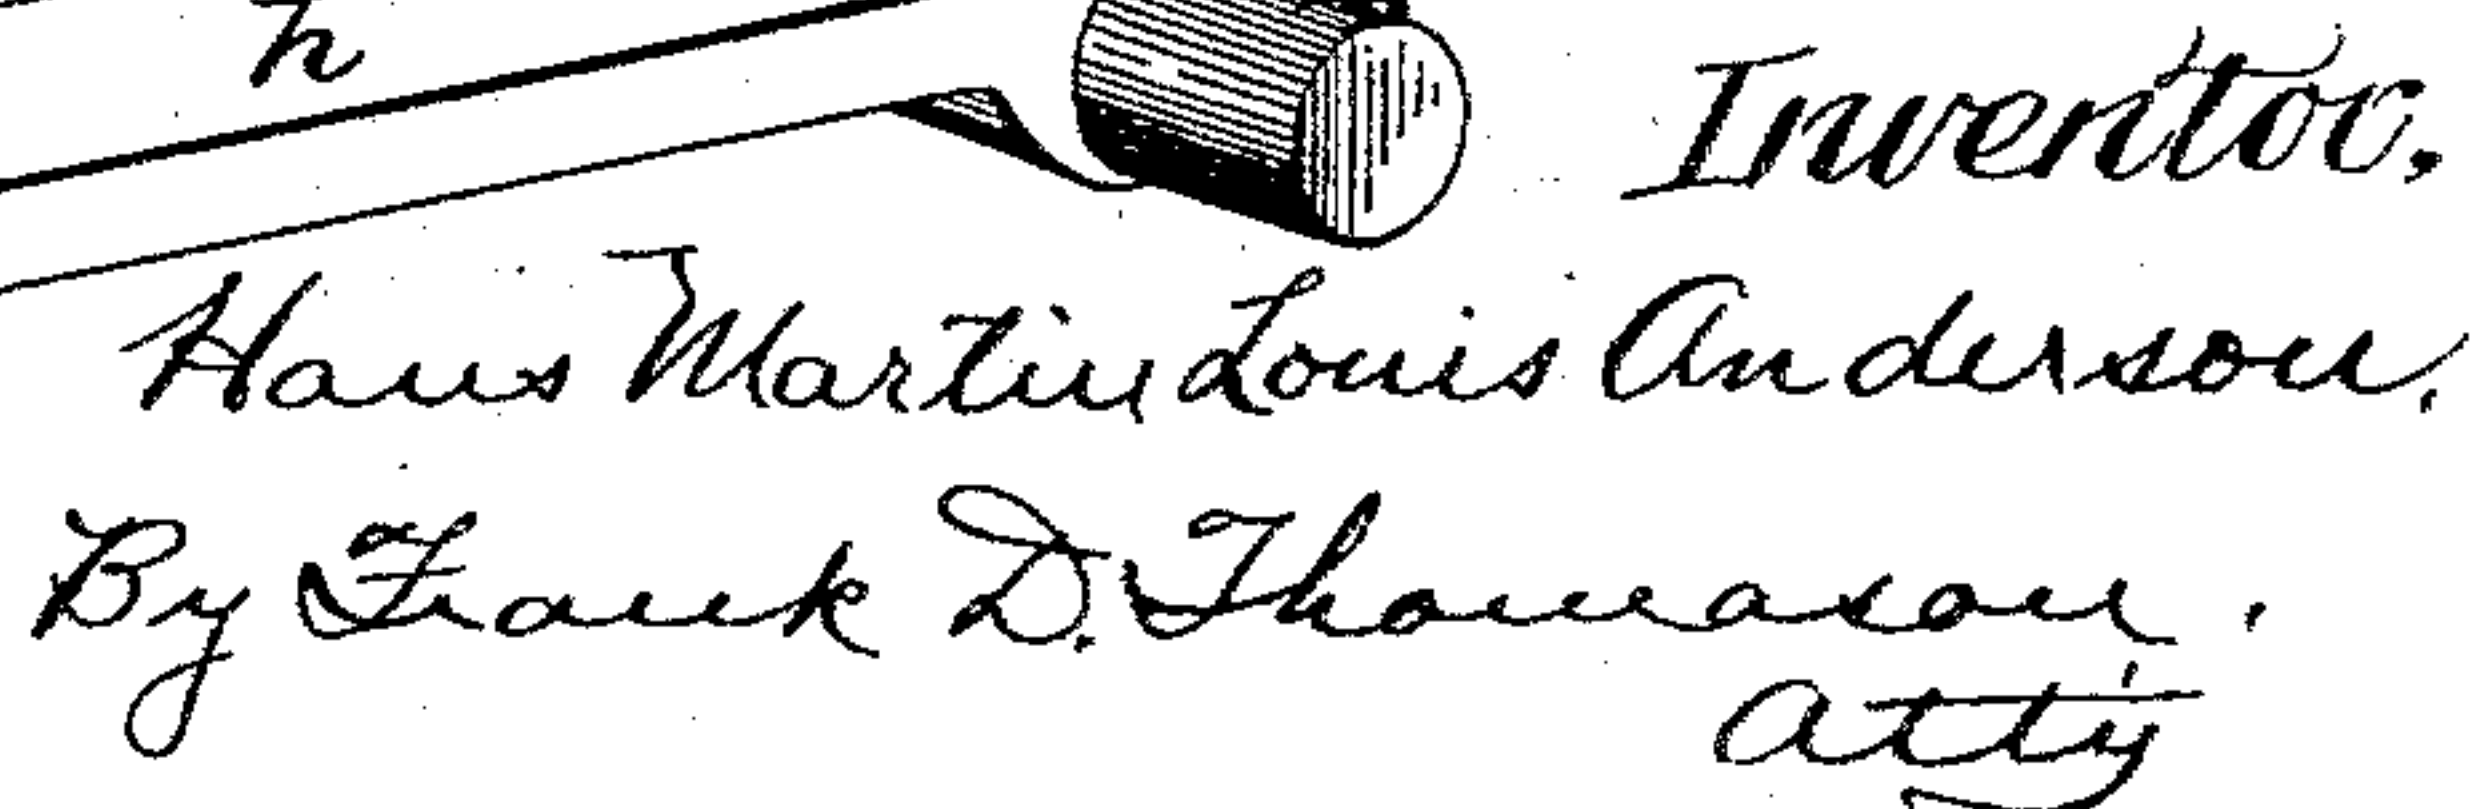 h
Inventor.
Hans Martin Louis Anderson.
By Frank D. Thomason.
Att'y